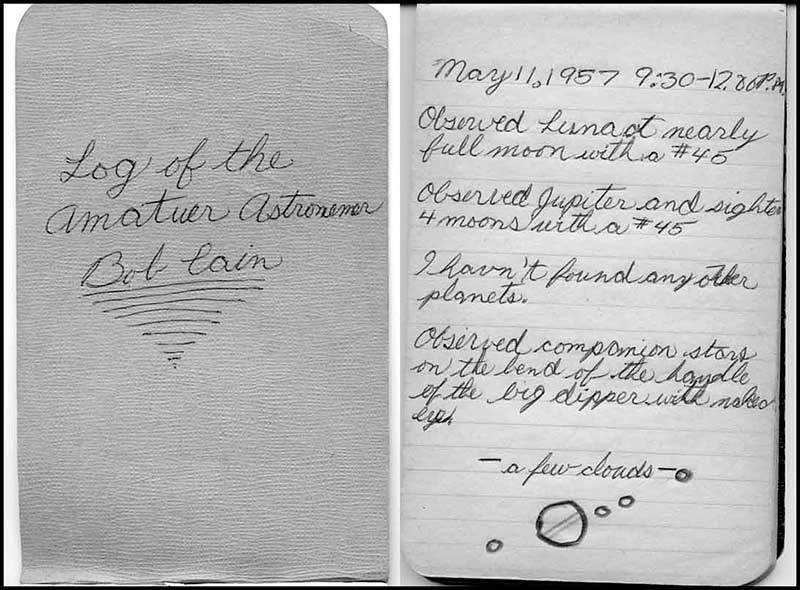 Log of the
Amatuer Astronemer
Bob Cain
May 11, 1957 9:30-12:00 P.M.
Observed Luna at nearly
full moon with a #45
Observed Jupiter and sighted
4 moons with a #45
I havn't found any other
planets.
Observed companion stars
on the bend of the handle
of the big dipper with naked
eye
- a few clouds -